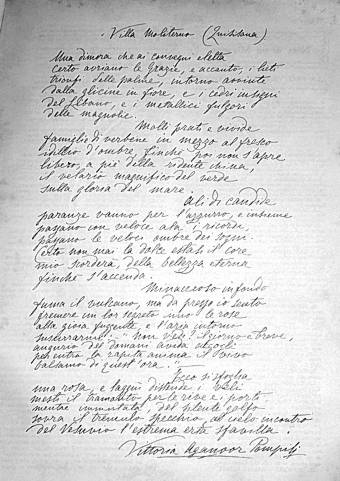 Villa Moliterno (Quisisana)
Una dimora che ai convegni eletta
certo avriano le Grazie, e accanto, i lieti
trionfi delle palme, intorno avvinte
dalla glicine in fiore, e i cedri insigni
del Libano, e i metallici fulgori
delle magnolie.
Molti prati e vivide
famiglie di verbene in mezzo al fresco
idillio d'ombre, finchè poi non s'apre
libero, a piè della ridente china,
il velario magnifico del verde
sulla gloria del mare.
Ali di candide
paranze vanno per l'azzurro, e insieme
passano con veloce ala i ricordi,
passano le veloci ombre dei sogni.
Certo non mai la dolce estasi il core
mio scorderà, della bellezza eterna
finchè s'accenda.
Minaccioso in fondo
fuma il vulcano, ma da presso io sento
fremere un lor segreto inno le rose
alla gioia fuggente, e l'aria intorno
susurrarmi: "Non vedi? Il giorno è breve,
augurio del domani avida cogli
per entro la rapita anima il novo
balsamo di quest'ora."
Ecco si sfoglia
una rosa, e laggiù distende i veli
mesti il tramonto per le rive e i porti
mentre immortale, del silente golfo
sovra il tremulo specchio, al cielo incontro
del Vesuvio l'estrema erta sfavilla.
Vittoria Aganoor Pompilj